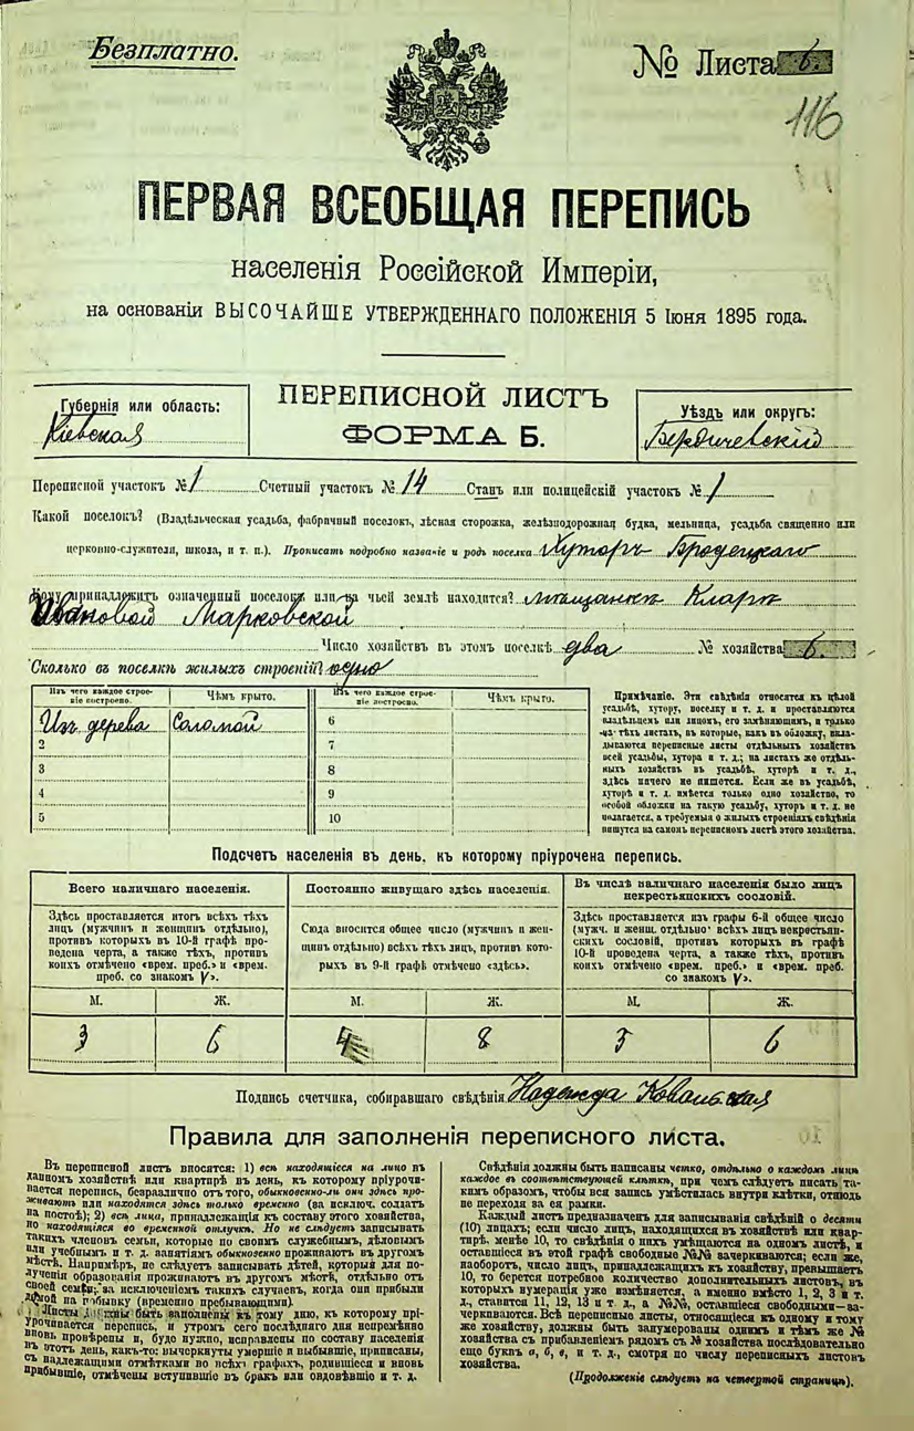 Безплатно.
№ Листа 6.
116
ПЕРВАЯ ВСЕОБЩАЯ ПЕРЕПИСЬ
населенія Россійской Имперіи,
на основаніи ВЫСОЧАЙШЕ УТВЕРЖДЕННАГО ПОЛОЖЕНІЯ 5 Іюня 1895 года.
Губернія или область:
Кіевская
ПЕРЕПИСНОЙ ЛИСТЪ
ФОРМА Б.
Уѣздъ или округъ:
Бердичевскій
Переписной участокъ № 1 Счетный участокъ № 14 Станъ или полицейскій участокъ № 1
Какой поселокъ? (Владѣльческая усадьба, фабричный поселокъ, лѣсная сторожка, желѣзнодорожная будка, мельница, усадьба священно или
церковно-служителя, школа, и т. п.). Прописать подробно названіе и родъ поселка Хуторъ Бродецкаго
Кому принадлежитъ означенный поселокъ или на чьей землѣ находится? мѣщанкѣ Кларѣ
Ивановой Марковской
Число хозяйствъ въ этомъ поселкѣ два № хозяйства 6.
Сколько въ поселкѣ жилыхъ строеній? одно
Изъ чего каждое строеніе построено. Чѣмъ крыто. Изъ чего каждое строеніе построено. Чѣмъ крыто.
Изъ дерева Соломой 6
2 7
3 8
4 9
5 10
Примѣчаніе. Эти свѣдѣнія относятся къ цѣлой
усадьбѣ, хутору, поселку и т. д. и проставляются
владѣльцемъ или лицомъ, его замѣняющимъ, и только
на тѣхъ листахъ, въ которые, какъ въ обложку, вкладываются
переписные листы отдѣльныхъ хозяйствъ
всей усадьбы, хутора и т. д.; на листахъ же отдѣльныхъ
хозяйствъ въ усадьбѣ, хуторѣ и т. д.,
здѣсь ничего не пишется. Если же въ усадьбѣ,
хуторѣ и т. д. имѣется только одно хозяйство, то
особой обложки на такую усадьбу, хуторъ и т. д. не
полагается, а требуемыя о жилыхъ строеніяхъ свѣдѣнія
пишутся на самомъ переписномъ листѣ этого хозяйства.
Подсчетъ населенія въ день, къ которому пріурочена перепись.
Всего наличнаго населенія.
Здѣсь проставляется итогъ всѣхъ тѣхъ
лицъ (мужчинъ и женщинъ отдѣльно),
противъ которыхъ въ 10-й графѣ проведена
черта, а также тѣхъ, противъ
коихъ отмѣчено «врем. преб.» и «врем.
преб. со знакомъ V».
Постоянно живущаго здѣсь населенія.
Сюда вносится общее число (мужчинъ и женщинъ
отдѣльно) всѣхъ тѣхъ лицъ, противъ которыхъ
въ 9-й графѣ отмѣчено «здѣсь».
Въ числѣ наличнаго населенія было лицъ
некрестьянскихъ сословій.
Здѣсь проставляется изъ графы 6-й общее число
(мужч. и женщ. отдѣльно) всѣхъ лицъ некрестьянскихъ
сословій, противъ которыхъ въ графѣ
10-й проведена черта, а также тѣхъ, противъ
коихъ отмѣчено «врем. преб.» и «врем. преб.
со знакомъ V».
М. Ж. М. Ж. М. Ж.
3 6 4 8 3 6
Подпись счетчика, собиравшаго свѣдѣнія Надежда Ковальская
Правила для заполненія переписного листа.
Въ переписной листъ вносятся: 1) всѣ находящіеся на лицо въ
данномъ хозяйствѣ или квартирѣ въ день, къ которому пріурочивается
перепись, безразлично отъ того, обыкновенно-ли они здѣсь проживаютъ
или находятся здѣсь только временно (за исключ. солдатъ
на постоѣ); 2) всѣ лица, принадлежащія къ составу этого хозяйства,
но находящіеся во временной отлучкѣ. Но не слѣдуетъ записывать
такихъ членовъ семьи, которые по своимъ служебнымъ, дѣловымъ
или учебнымъ и т. д. занятіямъ обыкновенно проживаютъ въ другомъ
мѣстѣ. Напримѣръ, не слѣдуетъ записывать дѣтей, которыя для полученія
образованія проживаютъ въ другомъ мѣстѣ, отдѣльно отъ
своей семьи; за исключеніемъ такихъ случаевъ, когда они прибыли
домой на побывку (временно пребывающими).
Листы должны быть заполнены къ тому дню, къ которому пріурочивается
перепись, и утромъ сего послѣдняго дня непремѣнно
вновь провѣрены и, буде нужно, исправлены по составу населенія
въ этотъ день, какъ-то: вычеркнуты умершіе и выбывшіе, приписаны,
съ надлежащими отмѣтками во всѣхъ графахъ, родившіеся и вновь
прибывшіе, отмѣчены вступившіе въ бракъ или овдовѣвшіе и т. д.
Свѣдѣнія должны быть написаны четко, отдѣльно о каждомъ лицѣ
каждое въ соотвѣтствующей клѣткѣ, при чемъ слѣдуетъ писать такимъ
образомъ, чтобы вся запись умѣстилась внутри клѣтки, отнюдь
не переходя за ея рамки.
Каждый листъ предназначенъ для записыванія свѣдѣній о десяти
(10) лицахъ; если число лицъ, находящихся въ хозяйствѣ или квартирѣ,
менѣе 10, то свѣдѣнія о нихъ умѣщаются на одномъ листѣ, и
оставшіеся въ этой графѣ свободные №№ зачеркиваются; если же,
наоборотъ, число лицъ, принадлежащихъ къ хозяйству, превышаетъ
10, то берется потребное количество дополнительныхъ листовъ, въ
которыхъ нумерація уже измѣняется, а именно вмѣсто 1, 2, 3 и т.
д., ставится 11, 12, 13 и т. д., а №№, оставшіеся свободными—зачеркиваются.
Всѣ переписные листы, относящіеся къ одному и тому
же хозяйству, должны быть занумерованы однимъ и тѣмъ же №
хозяйства съ прибавленіемъ рядомъ съ № хозяйства послѣдовательно
еще буквъ а, б, в, и т. д., смотря по числу переписныхъ листовъ
хозяйства.
(Продолженіе слѣдуетъ на четвертой страницѣ).